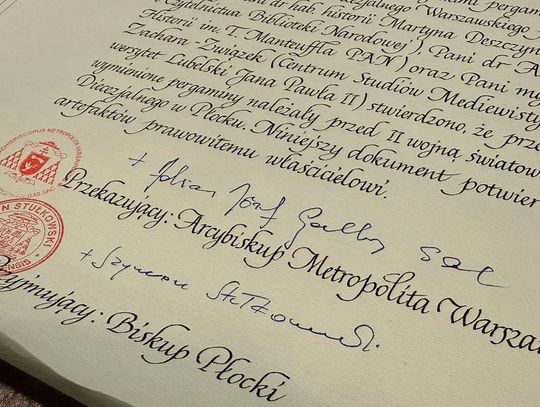 ezjalnego Warszawskiego
dr hab. historii Martyna Deszczyń
Czytelnictwa Biblioteki Narodowej) Pani dr A
Historii im. T. Manteuffla PAN) oraz Pani mg
Zachara-Związek (Centrum Studiów Mediewisty
wersytet Lubelski Jana Pawła II) stwierdzono, że prze
wymienione pergaminy należały przed II wojną światow
Diecezjalnego w Płocku. Niniejszy dokument potwier
artefaktów prawowitemu właścicielowi.
+ Adrian Józef Galbas SAC
Przekazujący: Arcybiskup Metropolita Warsza
+ Szymon Stułkowski
yjmujący: Biskup Płocki
N STUŁKOWSKI